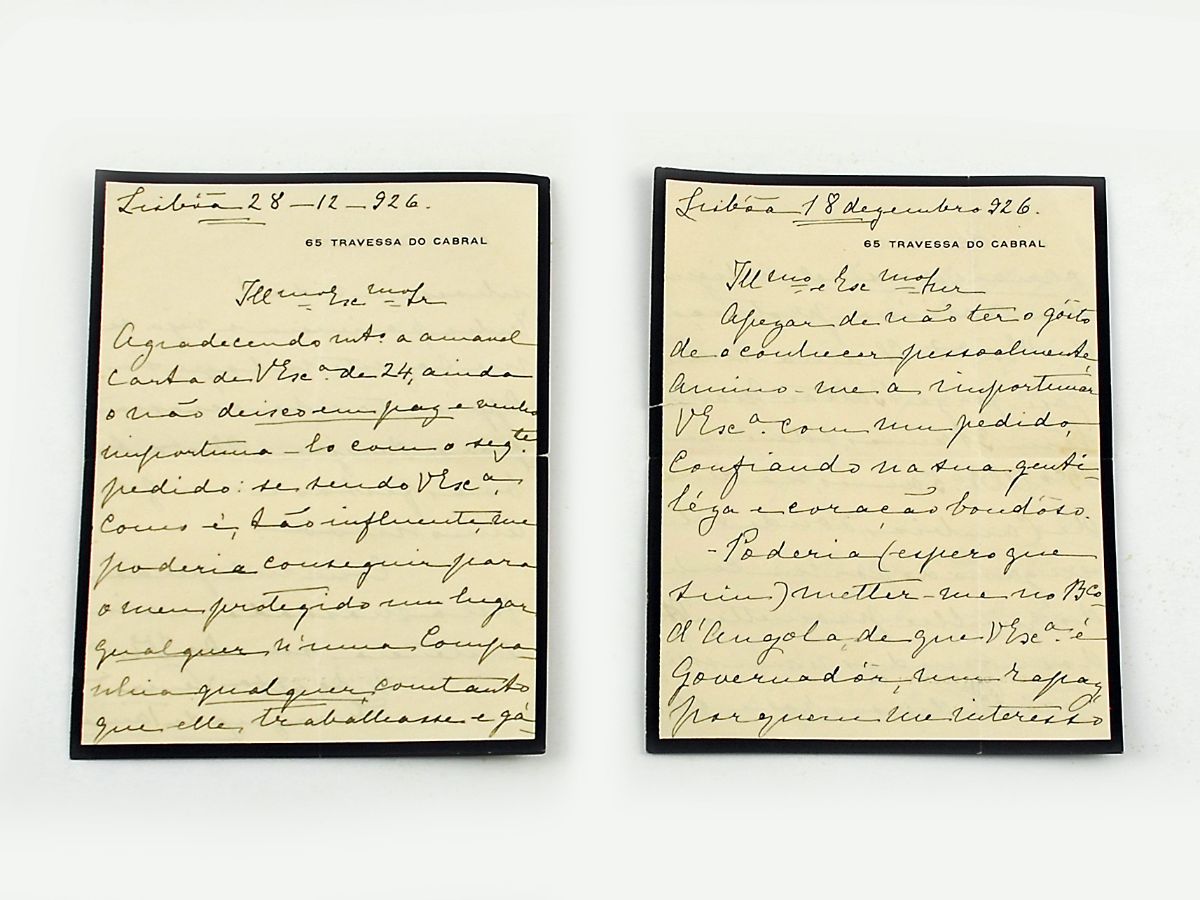 Lisbôa 28–12–926.
65 TRAVESSA DO CABRAL
Illmo Exc mo Sr
Agradecendo mto. a amavel
carta de V Exca. de 24, ainda
o não deixo em paz e venho
importuna-lo com o segte.
pedido: se sendo V Exca,
como é, tão influente, me
poderia conseguir para
o meu protegido um lugar
qualquer n'uma Compa-
nhia qualquer, comtanto
que elle trabalhasse e gá-
Lisbôa 18 dezembro 926.
65 TRAVESSA DO CABRAL
Illmo e Exc mo Snr
Apezar de não ter o gôsto
de o conhecer pessoalmente
animo-me a importunar
V Exca. com um pedido,
confiando na sua genti-
léza e coração bondôso.
- Poderia (espero que
sim) metter-me no Bco.
d'Angola, de que V Exca. é
Governadôr, um rapaz
por quem me interésso